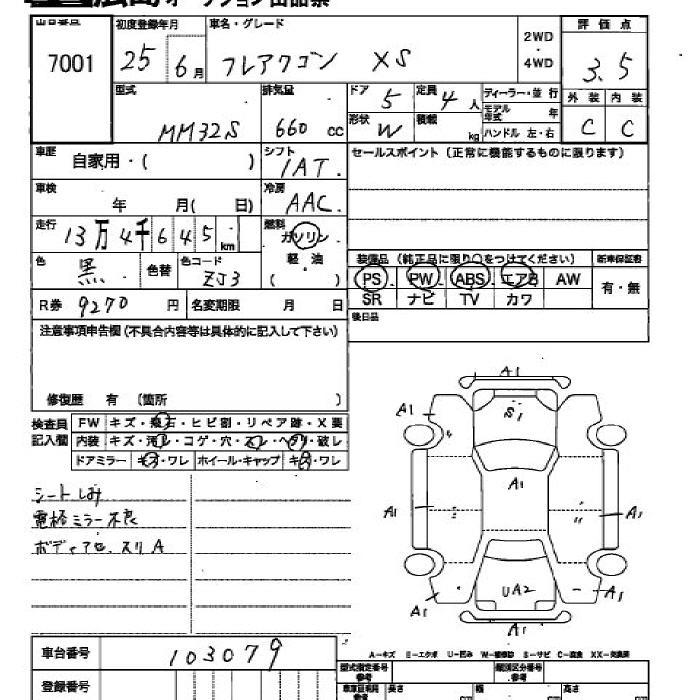 広島オークション出品票
出品番号 初度登録年月 車名・グレード 2WD・4WD 評価点
7001 25 6月 フレアワゴン XS 3.5
型式 排気量 ドア 5 定員 4人 ディーラー・並行 外装 内装
MM32S 660cc 形状 W 積載 kg モデル年式 年 C C
ハンドル 左・右
車歴 自家用・( ) シフト IAT. セールスポイント(正常に機能するものに限ります)
車検 年 月( 日) 冷房 AAC
走行 13万4千645km 燃料 ガソリン
色 黒 色替 色コード ZJ3 軽・油 ( )
装備品(純正品に限り○をつけてください) 新車保証書
PS PW ABS エアB AW 有・無
SR ナビ TV カワ
R券 9270円 名変期限 月 日 後日品
注意事項申告欄(不具合内容等は具体的に記入して下さい)
修復歴 有 (箇所 )
検査員記入欄 FW キズ・飛石・ヒビ割・リペア跡・X要
内装 キズ・汚レ・コゲ・穴・スレ・ヘタリ・破レ
ドアミラー キズ・ワレ ホイール・キャップ キズ・ワレ
シートしみ
電格ミラー不良
ボディアセ、スリA
A1
A1 S1
A1
A1 A1
UA2
A1 A1
A1
車台番号 103079
A-キズ E-エクボ U-凹み W-補修跡 S-サビ C-腐食 XX-交換済
登録番号 型式指定番号 参考 類別区分番号 参考
長さ cm 幅 cm 高さ cm